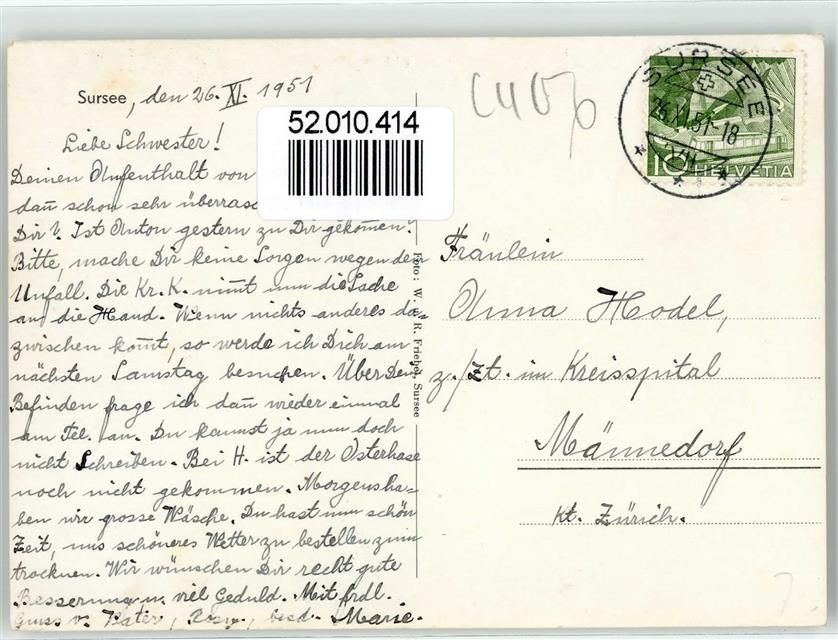 Sursee, den 26. XI. 1951
52.010.414
Liebe Schwester!
Deinen Aufenthalt von
dan̄ schon sehr überrasc
Dir? Ist Anton gestern zu Dir gekom̄en?
Bitte, mache Dir keine Sorgen wegen dem
Unfall. Die Kr. K. nim̄t nun die Sache
an die Hand. Wenn nichts anderes da-
zwischen kom̄t, so werde ich Dich am
nächsten Samstag besuchen. Über Dein
Befinden frage ich dan̄ wieder einmal
am Tel. an. Du kannst ja nun doch
nicht Schreiben. Bei H. ist der Osterhase
noch nicht gekommen. Morgens ha-
ben wir grosse Wäsche. Du hast nun schön
Zeit, uns schöneres Wetter zu bestellen zum
trocknen. Wir wünschen Dir recht gute
Besserung u. viel Geduld. Mit frdl.
Gruss v. Vater, Rosw., besd. Marie.
Foto: W. & R. Friebel, Sursee
SURSEE
26.XI.51-18
VII
10 HELVETIA
Fräulein
Anna Hodel,
z./Zt. im Kreisspital
Männedorf
Kt. Zürich.